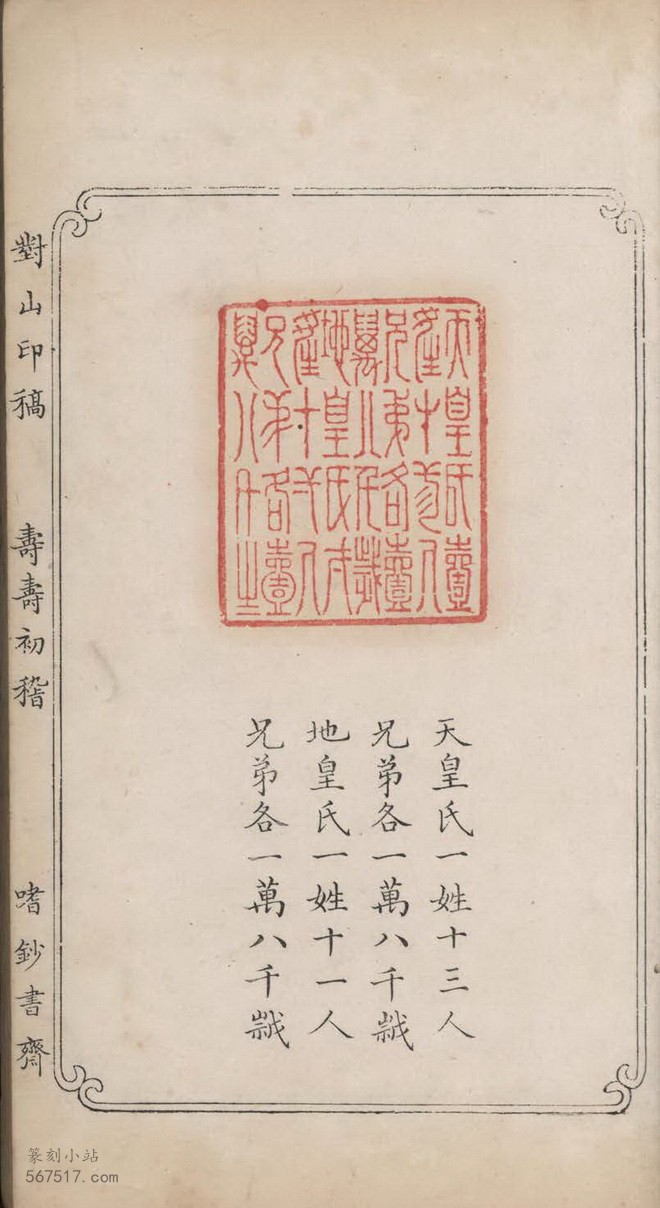 天皇氏壹
兄弟各壹
兄弟各壹
天皇氏一姓十三人
兄弟各一萬八千歲
地皇氏一姓十一人
兄弟各一萬八千歲
對山印稿 壽壽初稽 嗜鈔書齋
篆刻小站
567517.com